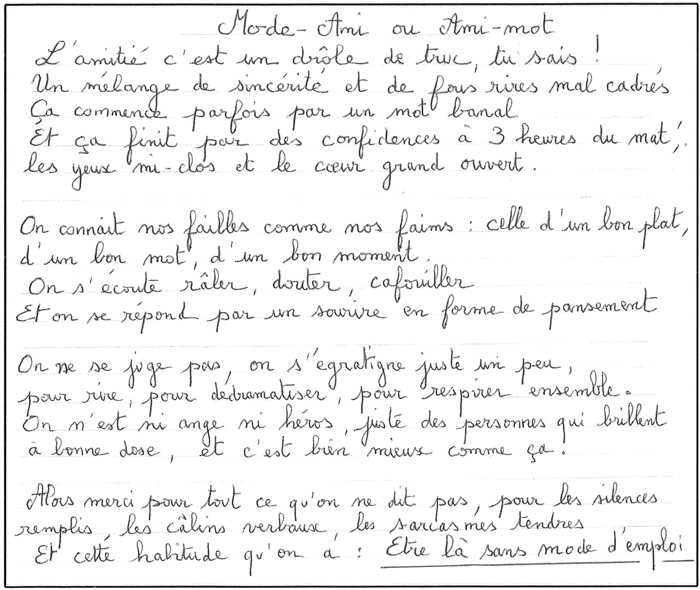 Mode-Ami ou Ami-mot
L'amitié c'est un drôle de truc, tu sais !
Un mélange de sincérité et de fous rires mal cadrés
Ça commence parfois par un mot banal
Et ça finit par des confidences à 3 heures du mat',
les yeux mi-clos et le cœur grand ouvert.
On connait nos failles comme nos faims : celle d'un bon plat,
d'un bon mot, d'un bon moment.
On s'écoute râler, douter, cafouiller
Et on se répond par un sourire en forme de pansement
On ne se juge pas, on s'égratigne juste un peu,
pour rire, pour dédramatiser, pour respirer ensemble.
On n'est ni ange ni héros, juste des personnes qui brillent
à bonne dose, et c'est bien mieux comme ça.
Alors merci pour tout ce qu'on ne dit pas, pour les silences
remplis, les câlins verbaux, les sarcasmes tendres
Et cette habitude qu'on a : Etre là sans mode d'emploi